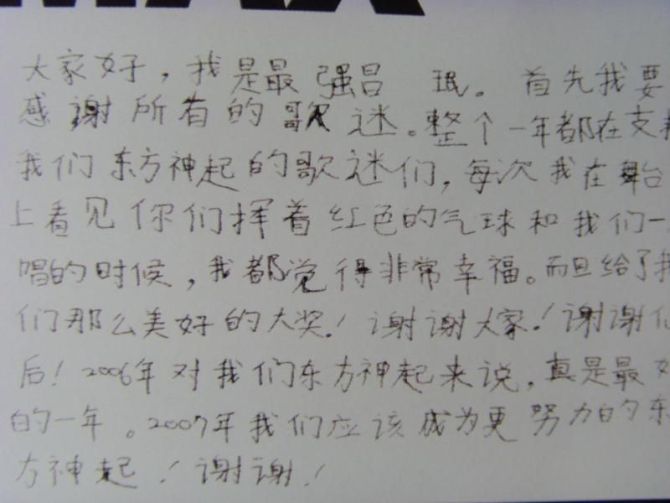 MAX
大家好，我是最强昌 珉。首先我要
感谢所有的歌迷。整个一年都在支
我们东方神起的歌迷们，每次我在舞台
上看见你们挥着红色的气球和我们一
唱的时候，我都觉得非常幸福。而且给了我
们那么美好的大奖！谢谢大家！谢谢
后！2006年对我们东方神起来说，真是最
的一年。2007年我们应该成为更努力的东
方神起！谢谢！